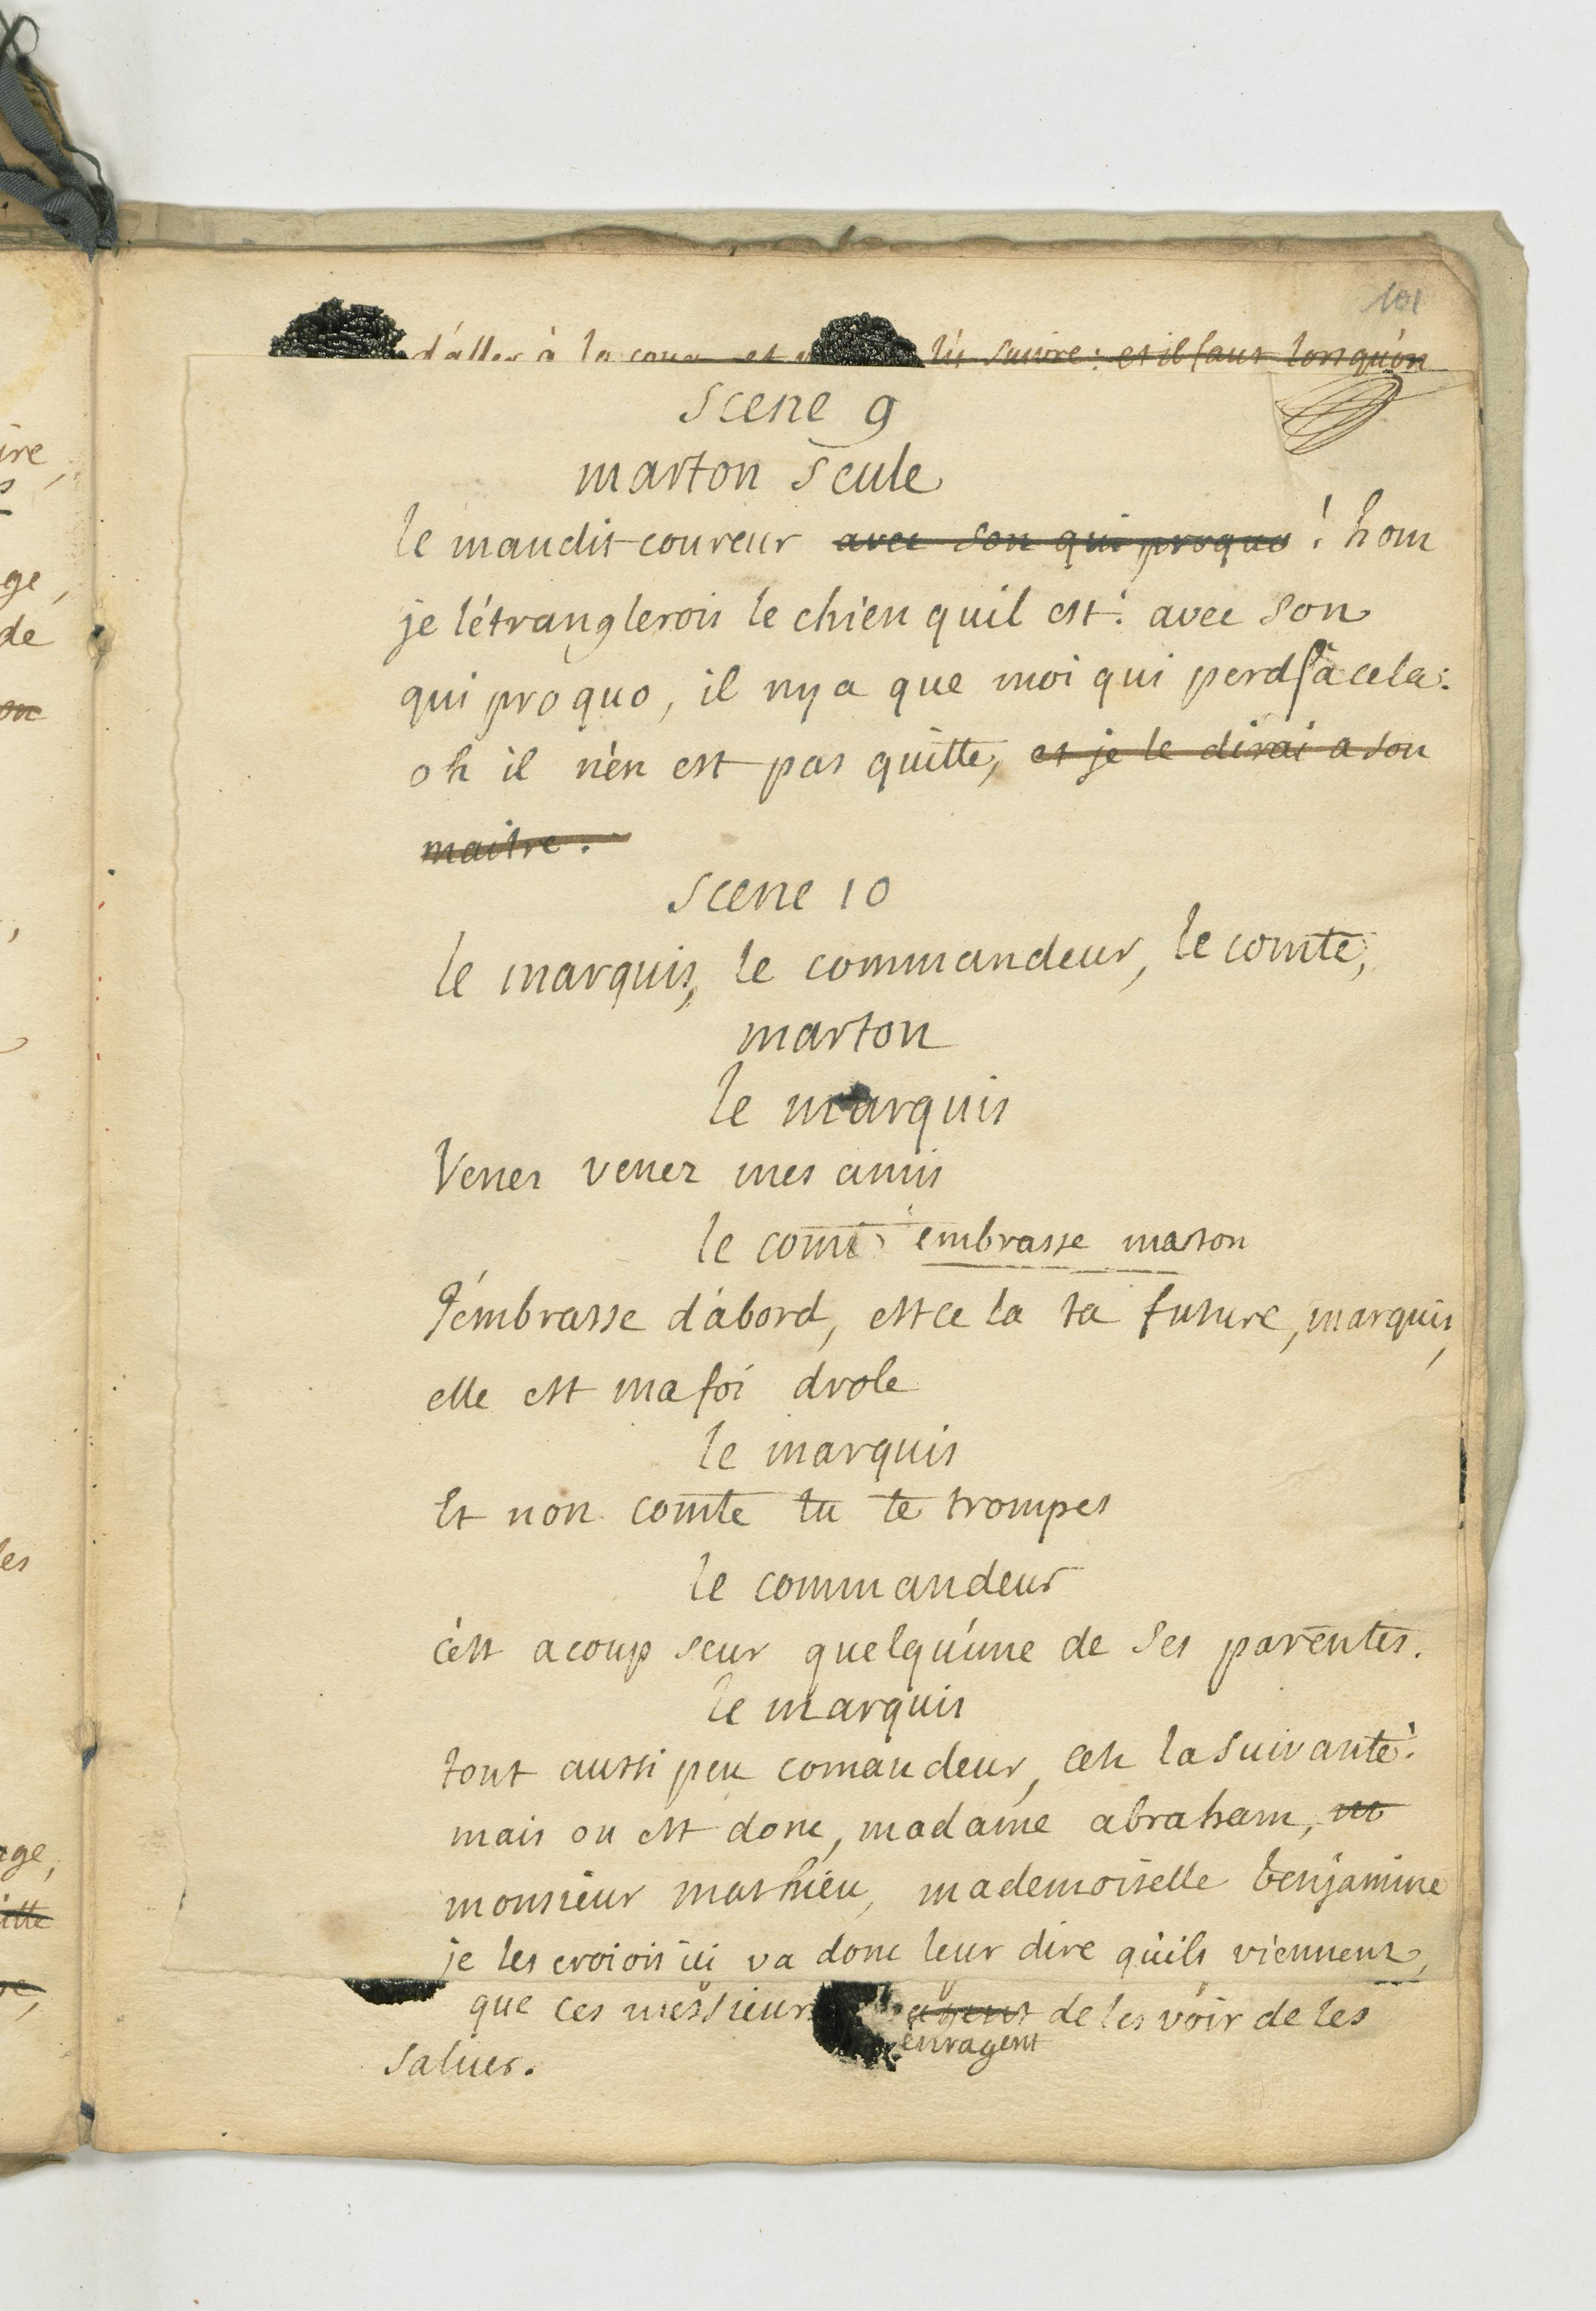 101
d'aller à la cour et lui suivre : et il faut lorsqu'on
scene 9
marton seule
le maudit coureur avec son qui proquo ! hom
je l'étranglerois le chien quil est ! avec son
qui pro quo, il ny a que moi qui perd à cela :
oh il n'en est pas quitte, et je le dirai a son
maitre .
scene 10
le marquis, le commandeur, le comte,
marton
le marquis
Venez venez mes amis
le comte embrasse marton
J'embrasse d'abord, est ce la ta future, marquis,
elle est ma foi drole
le marquis
Et non comte tu te trompes
le commandeur
c'est a coup seur quelqu'une de ses parentes.
le marquis
tout aussi peu comandeur, c'est la suivante !
mais ou est donc, madame abraham,
monsieur mathieu, mademoiselle benjamine
je les croiois ici va donc leur dire qu'ils viennent,
que ces messieurs de les voir de les
enragent
saluer.